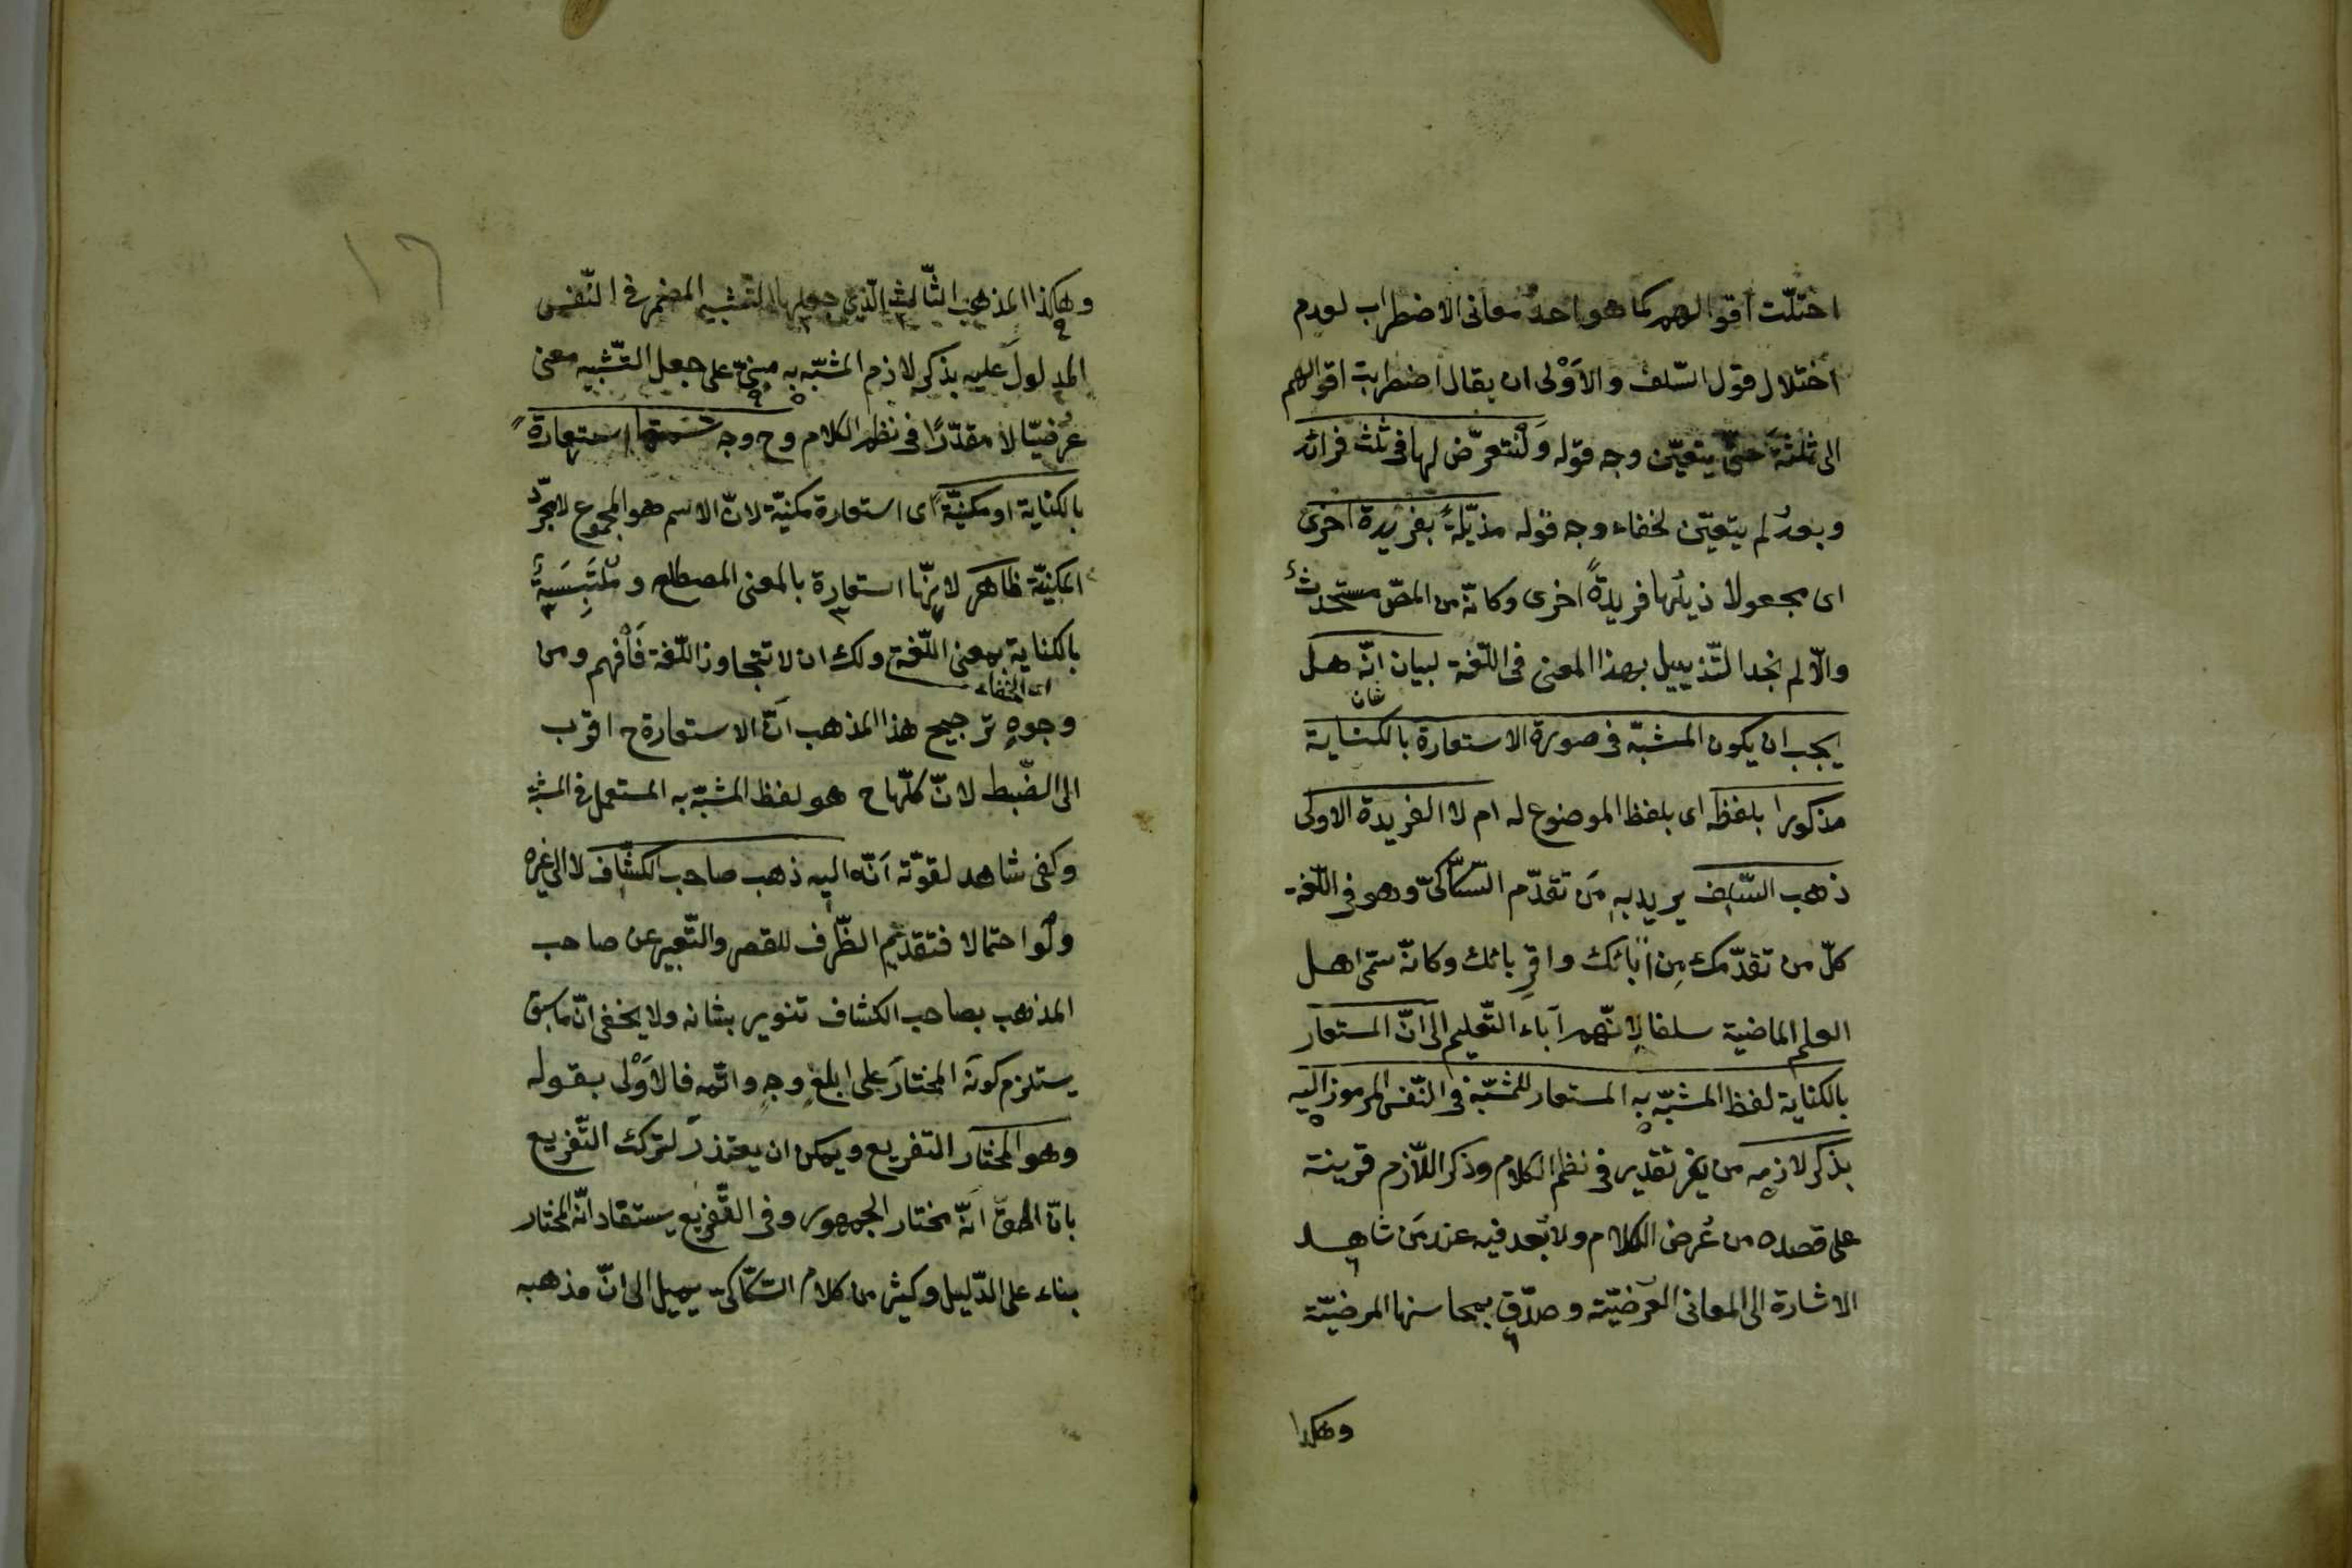 اختلّت اقوالهم كما هو احد معانى الاضطراب لعدم
اختلال قول السّلف والاَوْلى ان يقال اضطربت اقوالهم
الى ثلثة حتّى يتعيّن وجه قوله وَلْنتعرّض لها فى ثلث فرائد
وبعدُ لم يتعيّن لخفاء وجه قوله مذيّلةً بفريدة اخرى
اى مجعولا ذيلُها فريدةً اخرى وكانّه من المصّ مستحدث
والّا لم نجد التّذييل بهذا المعنى فى اللّغة لبيان انّه هل
شان
يجب ان يكون المشبّه فى صورة الاستعارة بالكناية
مذكورا بلفظه اى بلفظ الموضوع له ام لا الفريدة الاولى
ذهب السّلف يريد به مَن تقدّم السّكّاكىّ وهو فى اللّغة
كلّ من تقدّمك مِن اٰبائك واقربائك وكانّه سمّى اهل
العلم الماضية سلفا لانّهم آباء التّعليم الى انّ المستعار
بالكناية لفظ المشبّه به المستعار للمشبّه فى النّفس المرموز اليه
بذكر لازمه من غير تقدير فى نظم الكلام وذكر اللّازم قرينة
على قصده من عُرض الكلام ولا بُعد فيه عند مَن شاهد
الاشارة الى المعانى العُرضيّة وصدّق بمحاسنها المرضيّة
وهكذا
وهكذا المذهب الثّالث الّذى جعلها التشبيه المضمر فى النّفس
المدلولَ عليه بذكر لازم المشبّه به مبنىّ على جعل التّشبيه معنى
عُرضيّا لا مقدّرًا فى نظم الكلام وح وجه تسميتها استعارة
بالكناية او مكنيّة اى استعارة مكنيّة لانّ الاسم هو المجموع لا مجرّد
المكنيّة ظاهر لانّها استعارة بالمعنى المصطلح ومُلتَبِسَةٌ
بالكناية بمعنى اللّغة ولك ان لا تتجاوز اللّغة فَافهم ومن
اى الخفاء
وجوهِ ترجيح هذا المذهب انّ الاستعارة ح اقرب
الى الضّبط لانّ كلّها ح هو لفظ المشبّه به المستعمل فى المشبّه
وكفى شاهد لقوّته اَنّه اليه ذهب صاحب الكشّاف لا الى غيره
ولَو احتمالا فتقديم الظّرف للقصر والتّعبير عن صاحب
المذهب بصاحب الكشاف تنوير بشانه ولا يخفى انّ ما سبق
يستلزم كونَه المختارَ على ابلغِ وجهٍ واتمّه فالاَوْلى بقوله
وهو المختار التفريع ويمكن ان يعتذر لترك التّفريع
بانّ الحقّ انّه مختار الجمهور وفى التّفريع يستفاد انّه المختار
بناء على الدّليل وكثير من كلام السّكّاكى يميل الى انّ مذهبه